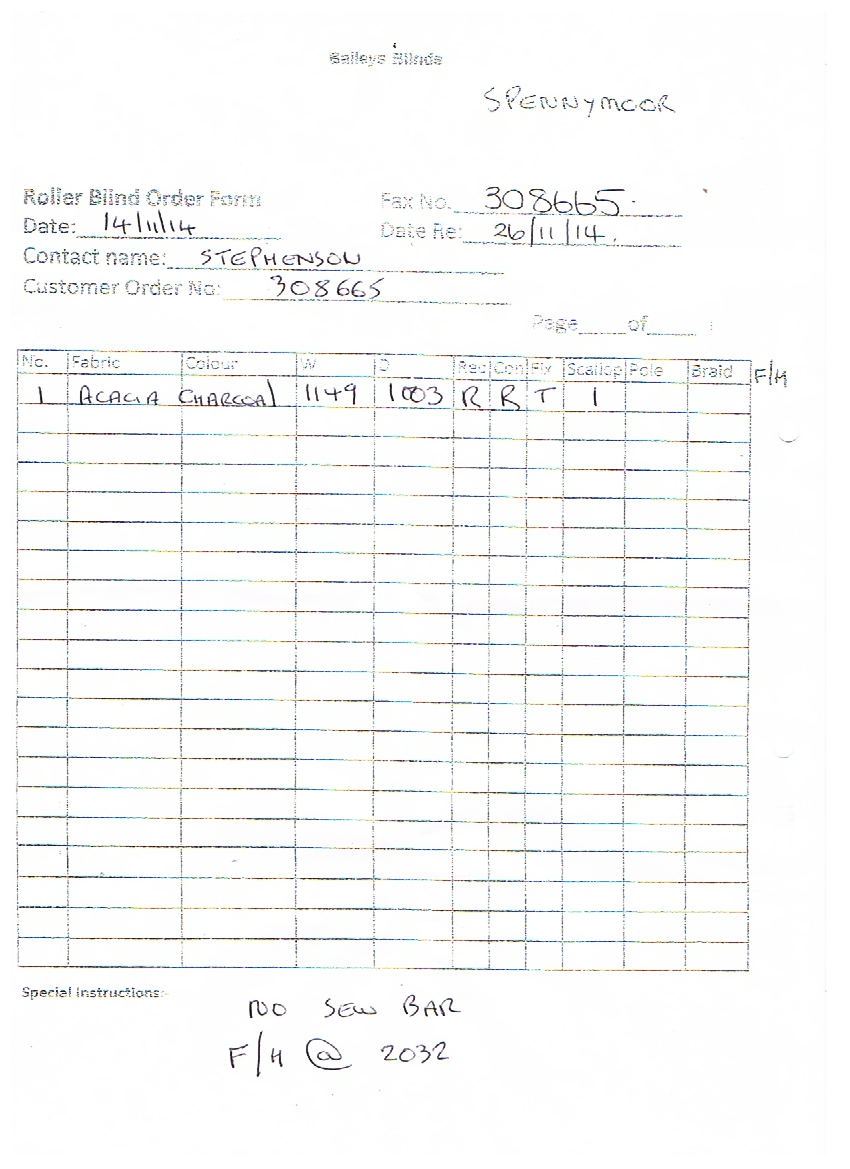 Baileys Blinds
SPENNYMOOR
Roller Blind Order Form Fax No. 308665.
Date: 14/11/14 Date Re: 26/11/14.
Contact name: STEPHENSON
Customer Order No: 308665
Page of :
No. Fabric Colour W D Rec Con Fix Scallop Pole Braid F/H
1 ACACIA CHARCOAl 1149 1003 R R T 1
Special Instructions:-
NO SEW BAR
F/H @ 2032